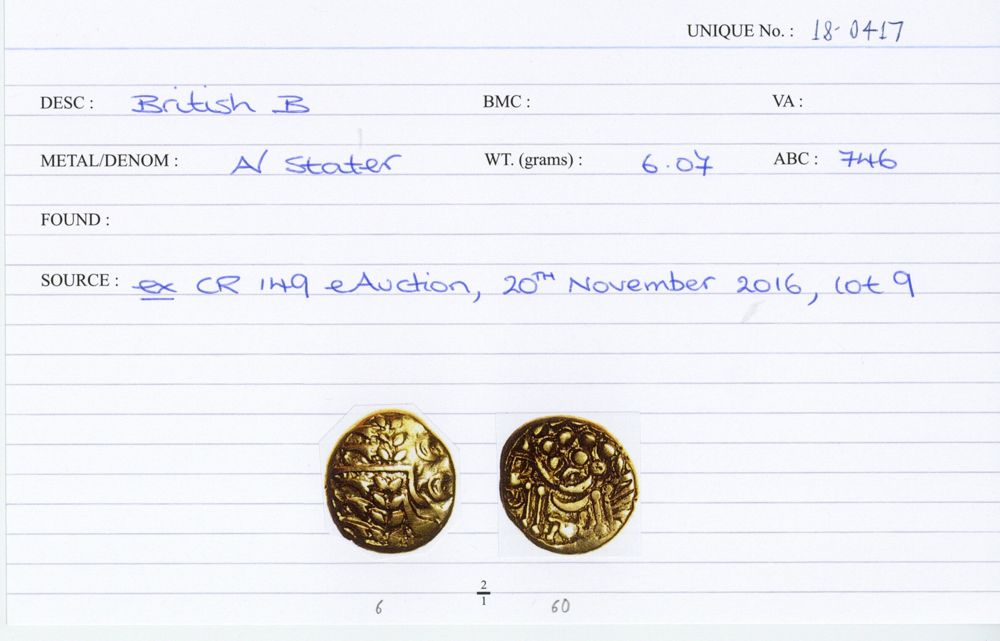 UNIQUE No. : 18-0417
DESC : British B BMC : VA :
METAL/DENOM : A/ Stater WT. (grams) : 6.07 ABC : 746
FOUND :
SOURCE : ex CR 149 eAuction, 20TH November 2016, lot 9
2
1
6 60